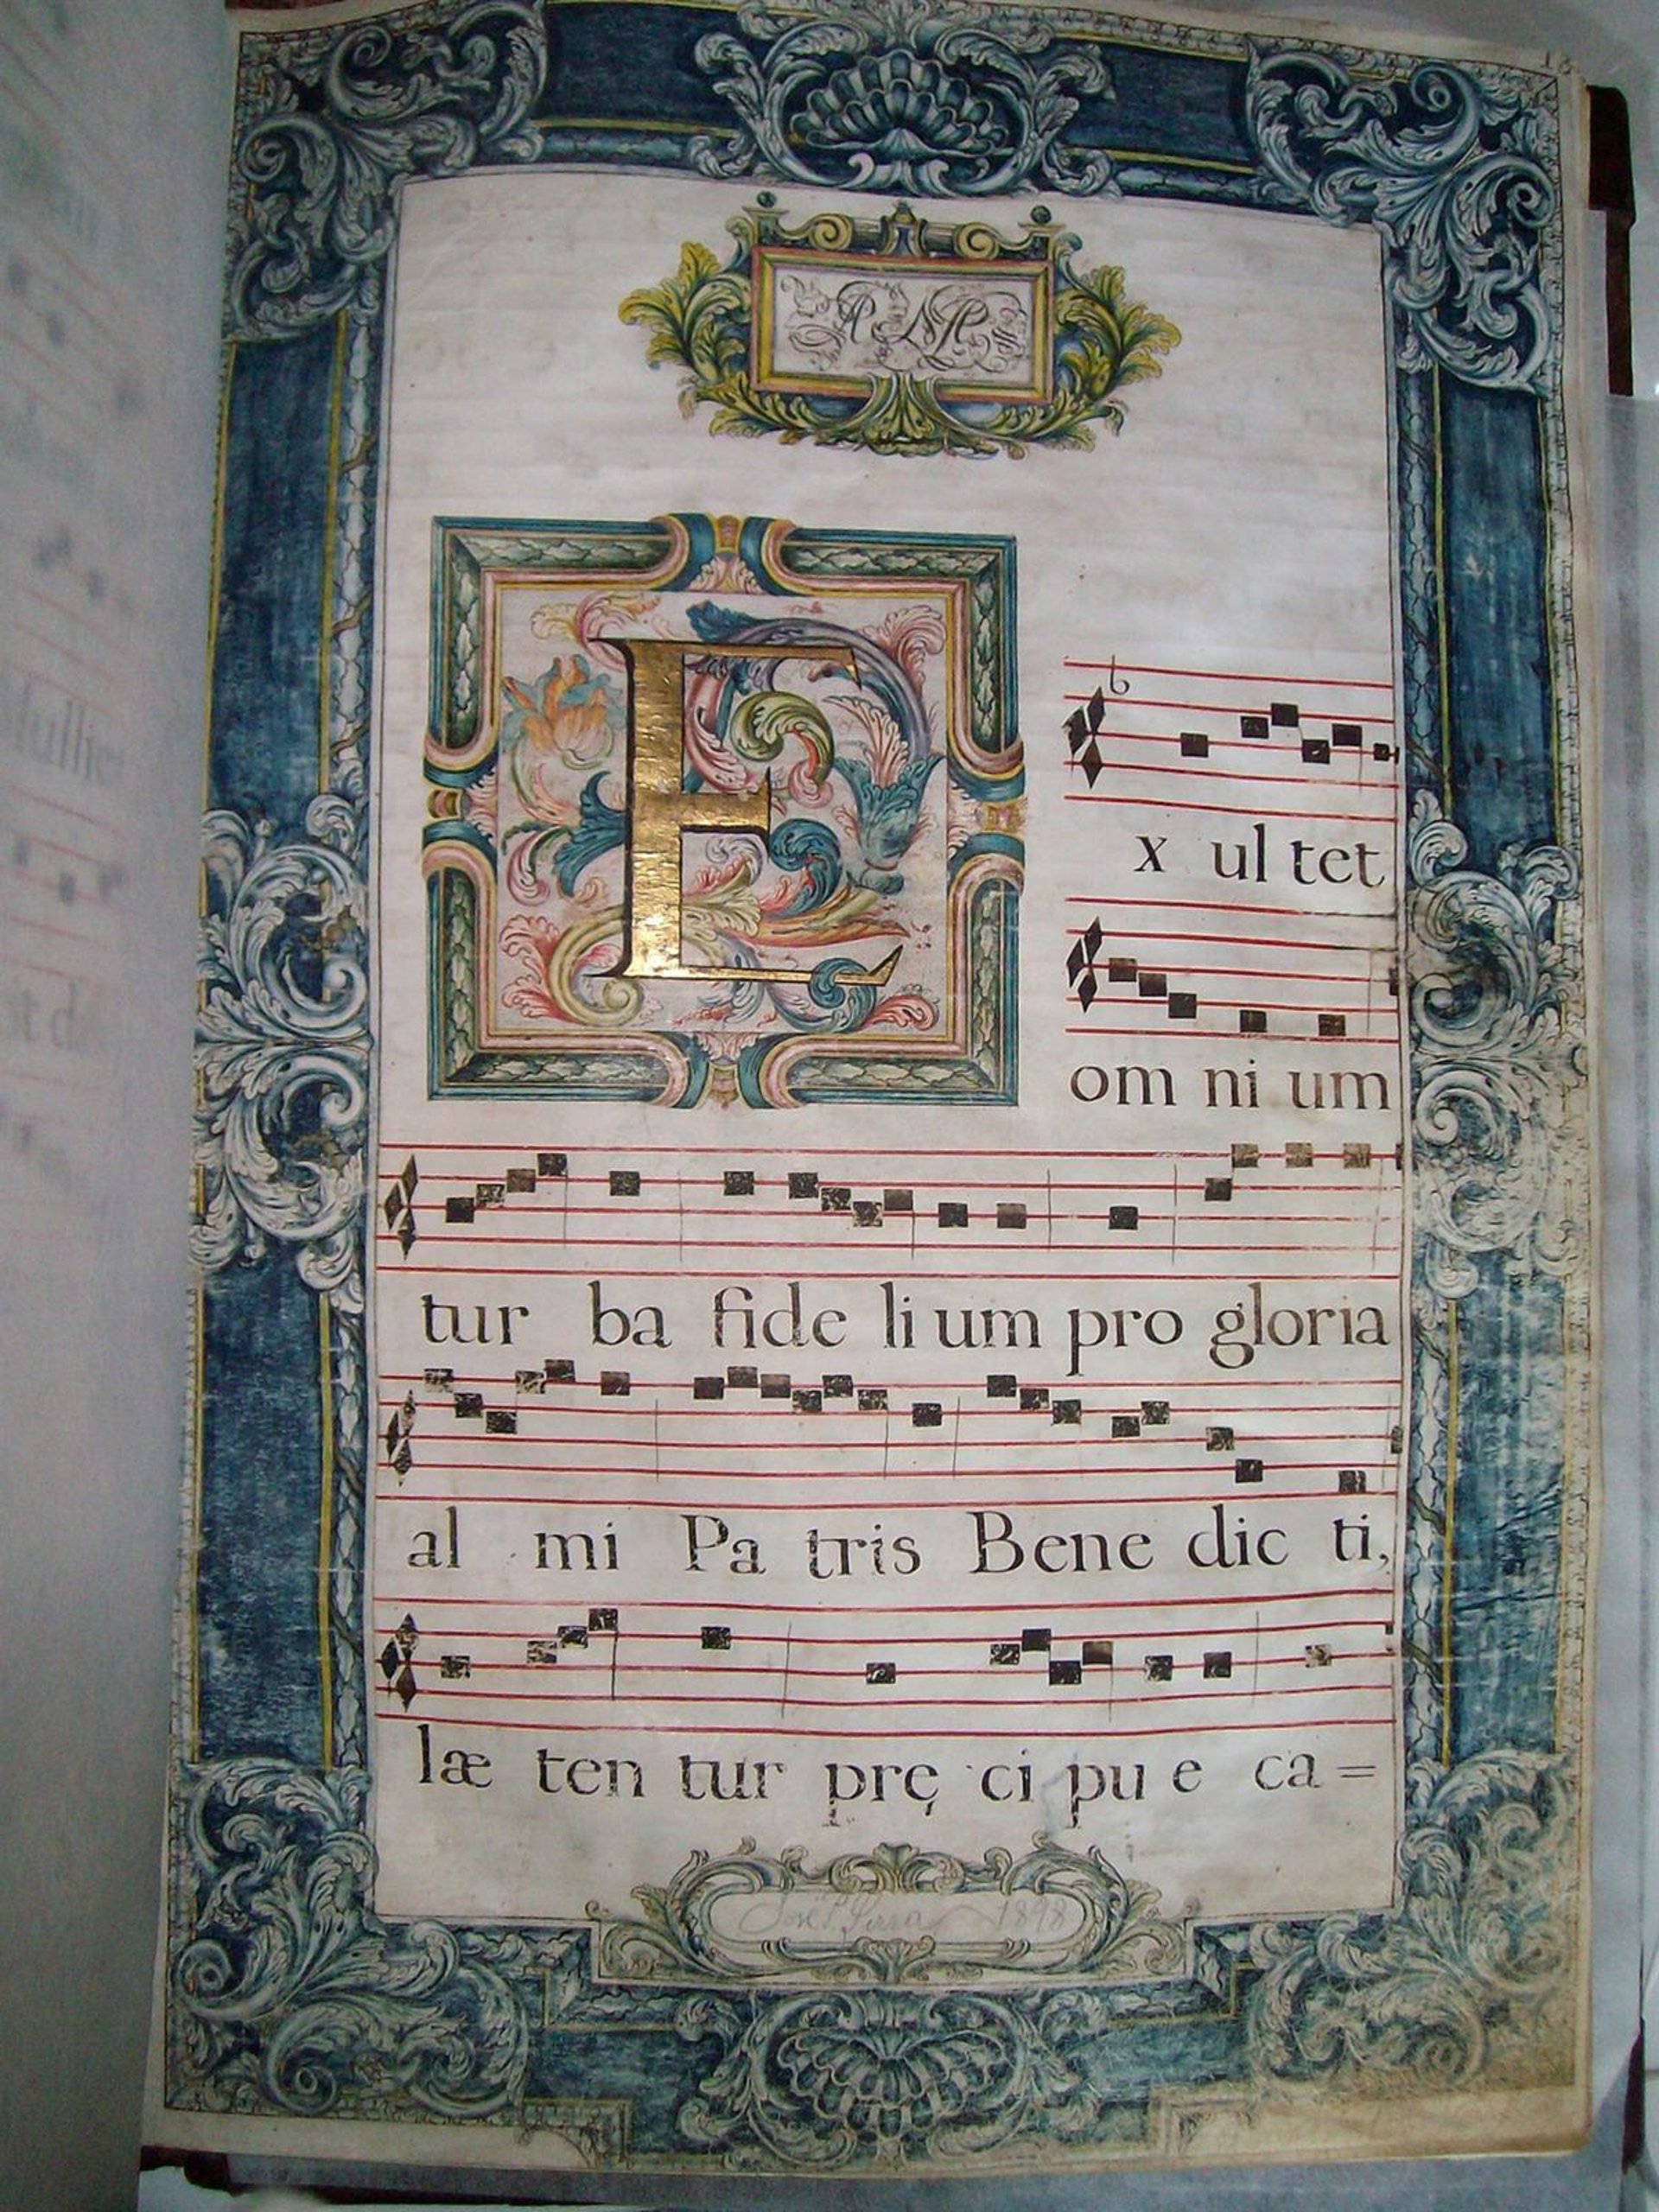 E
x ul tet
om ni um
tur ba fide li um pro gloria
al mi Pa tris Bene dic ti,
læ ten tur prę ci pu e ca=
1898